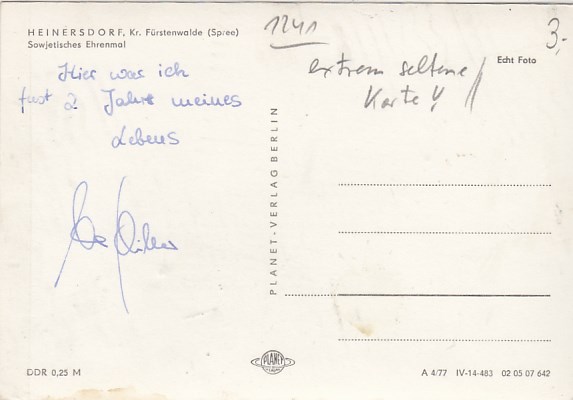 HEINERSDORF, Kr. Fürstenwalde (Spree)
Sowjetisches Ehrenmal
Hier war ich
fast 2 Jahre meines
Lebens
1241
3,-
extrem seltene
Karte!!
Echt Foto
PLANET-VERLAG BERLIN
PLANET
DDR 0,25 M
A 4/77 IV-14-483 02 05 07 642